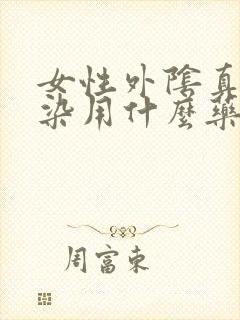 女性外陰真
染用什麼藥
周富東